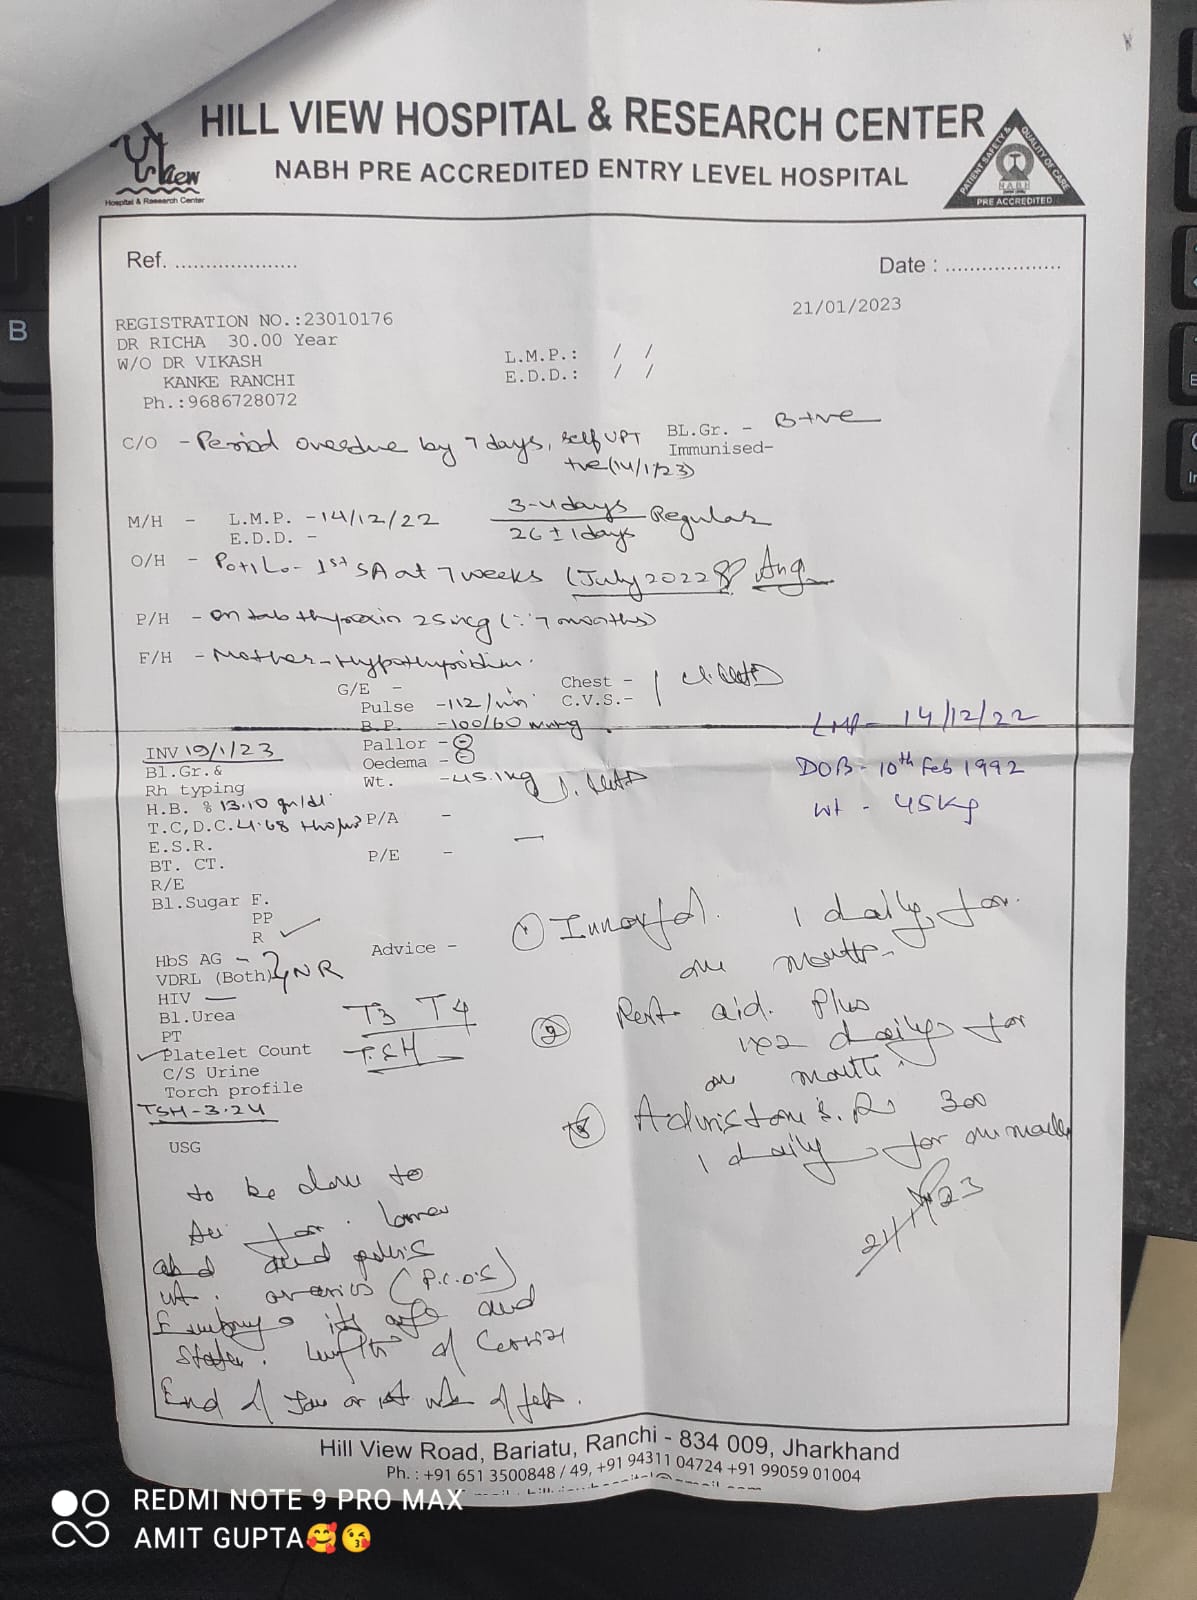 HILL VIEW HOSPITAL & RESEARCH CENTER
NABH PRE ACCREDITED ENTRY LEVEL HOSPITAL
View
Hospital & Research Center
PATIENT SAFETY & QUALITY OF CARE
NABH
PRE ACCREDITED
Ref. ....................
Date : ....................
21/01/2023
REGISTRATION NO.:23010176
DR RICHA 30.00 Year
W/O DR VIKASH
KANKE RANCHI
Ph.:9686728072
L.M.P.: / /
E.D.D.: / /
C/O - Period overdue by 7 days, self UPT
+ve (14/1/23)
BL.Gr. - B+ve
Immunised-
M/H - L.M.P. - 14/12/22 3-4 days Regular
E.D.D. - 26±1 days
O/H - 1st SA at 7 weeks (July 2022)
P/H - on tab thyroxin 25 mcg (7 months)
F/H - Mother - Hypothyroidism.
G/E -
Pulse - 112/min
B.P. - 100/60 mmHg
Chest -
C.V.S.-
Pallor -
Oedema -
Wt. - 45.1kg
LMP - 14/12/22
DOB - 10th Feb 1992
Wt - 45Kg
INV 19/1/23
Bl.Gr.&
Rh typing
H.B. 13.10 gm/dl
T.C,D.C. 4.68
E.S.R.
BT. CT.
R/E
Bl.Sugar F.
PP
R ✓
HbS AG -
VDRL (Both) NR
HIV —
Bl.Urea
PT
✓Platelet Count
C/S Urine
Torch profile
TSH - 3.24
P/A -
P/E - —
Advice -
T3 T4
TSH
1 1 daily for
one month
2 Rest aid. Plus
daily for
one month
3 300
1 daily for one month
21/1/23
USG
to be done to
for lower
abd and pelvis
ut. ovaries (P.C.O.S)
Embryo its age and
status. length of Cervix
End of Jan or 1st wk of feb.
Hill View Road, Bariatu, Ranchi - 834 009, Jharkhand
Ph. : +91 651 3500848 / 49, +91 94311 04724 +91 99059 01004
B
REDMI NOTE 9 PRO MAX
AMIT GUPTA🥰😘